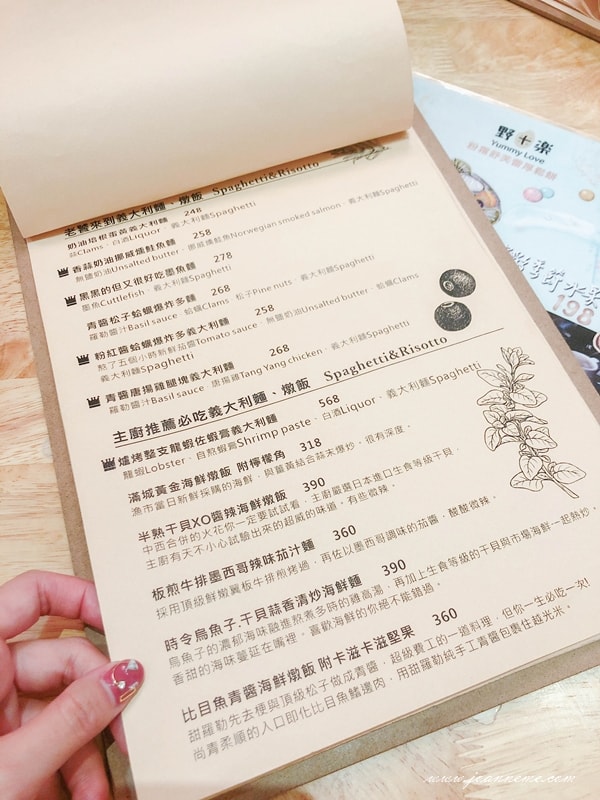 老饕來到義大利麵、燉飯 Spaghetti&Risotto
奶油培根蛋黃義大利麵 248
蒜Clams．白酒Liquor．義大利麵Spaghetti
香蒜奶油挪威燻鮭魚麵 258
無鹽奶油Unsalted butter．挪威燻鮭魚Norwegian smoked salmon．義大利麵Spaghetti
黑黑的但又很好吃墨魚麵 278
墨魚Cuttlefish．義大利麵Spaghetti
青醬松子蛤蠣爆炸多麵 268
羅勒醬汁Basil sauce．蛤蠣Clams．松子Pine nuts．義大利麵Spaghetti
粉紅醬蛤蠣爆炸多義大利麵 258
熬了五個小時新鮮茄醬Tomato sauce．無鹽奶油Unsalted butter．蛤蠣Clams
義大利麵Spaghetti
青醬唐揚雞腿塊義大利麵 268
羅勒醬汁Basil sauce．唐揚雞Tang Yang chicken．義大利麵Spaghetti
主廚推薦必吃義大利麵、燉飯 Spaghetti&Risotto
爐烤整支龍蝦佐蝦膏義大利麵 568
龍蝦Lobster．自熬蝦膏Shrimp paste．白酒Liquor．義大利麵Spaghetti
滿城黃金海鮮燉飯 附檸檬角 318
漁市當日新鮮採購的海鮮，與薑黃結合蒜末爆炒，很有深度。
半熟干貝XO醬辣海鮮燉飯 390
中西合併的火花你一定要試試看，主廚嚴選日本進口生食等級干貝，
主廚有天不小心試驗出來的超威的味道，有些微辣。
板煎牛排墨西哥辣味茄汁麵 360
採用頂級鮮嫩翼板牛排煎烤過，再佐以墨西哥調味的茄醬，酸酸微辣。
時令烏魚子干貝蒜香清炒海鮮麵 390
烏魚子的濃郁海味融進熬煮多時的雞高湯，再加上生食等級的干貝與市場海鮮一起熱炒，
香甜的海味蔓延在嘴裡，喜歡海鮮的你絕不能錯過。
比目魚青醬海鮮燉飯 附卡滋卡滋堅果 360
甜羅勒先去梗與頂級松子做成青醬，超級費工的一道料理，但你一生必吃一次!
尚青柔順的入口即化比目魚鰭邊肉，用甜羅勒純手工青醬包裹住越光米。
野十楽
Yummy Love
198
www.jeanneme.com